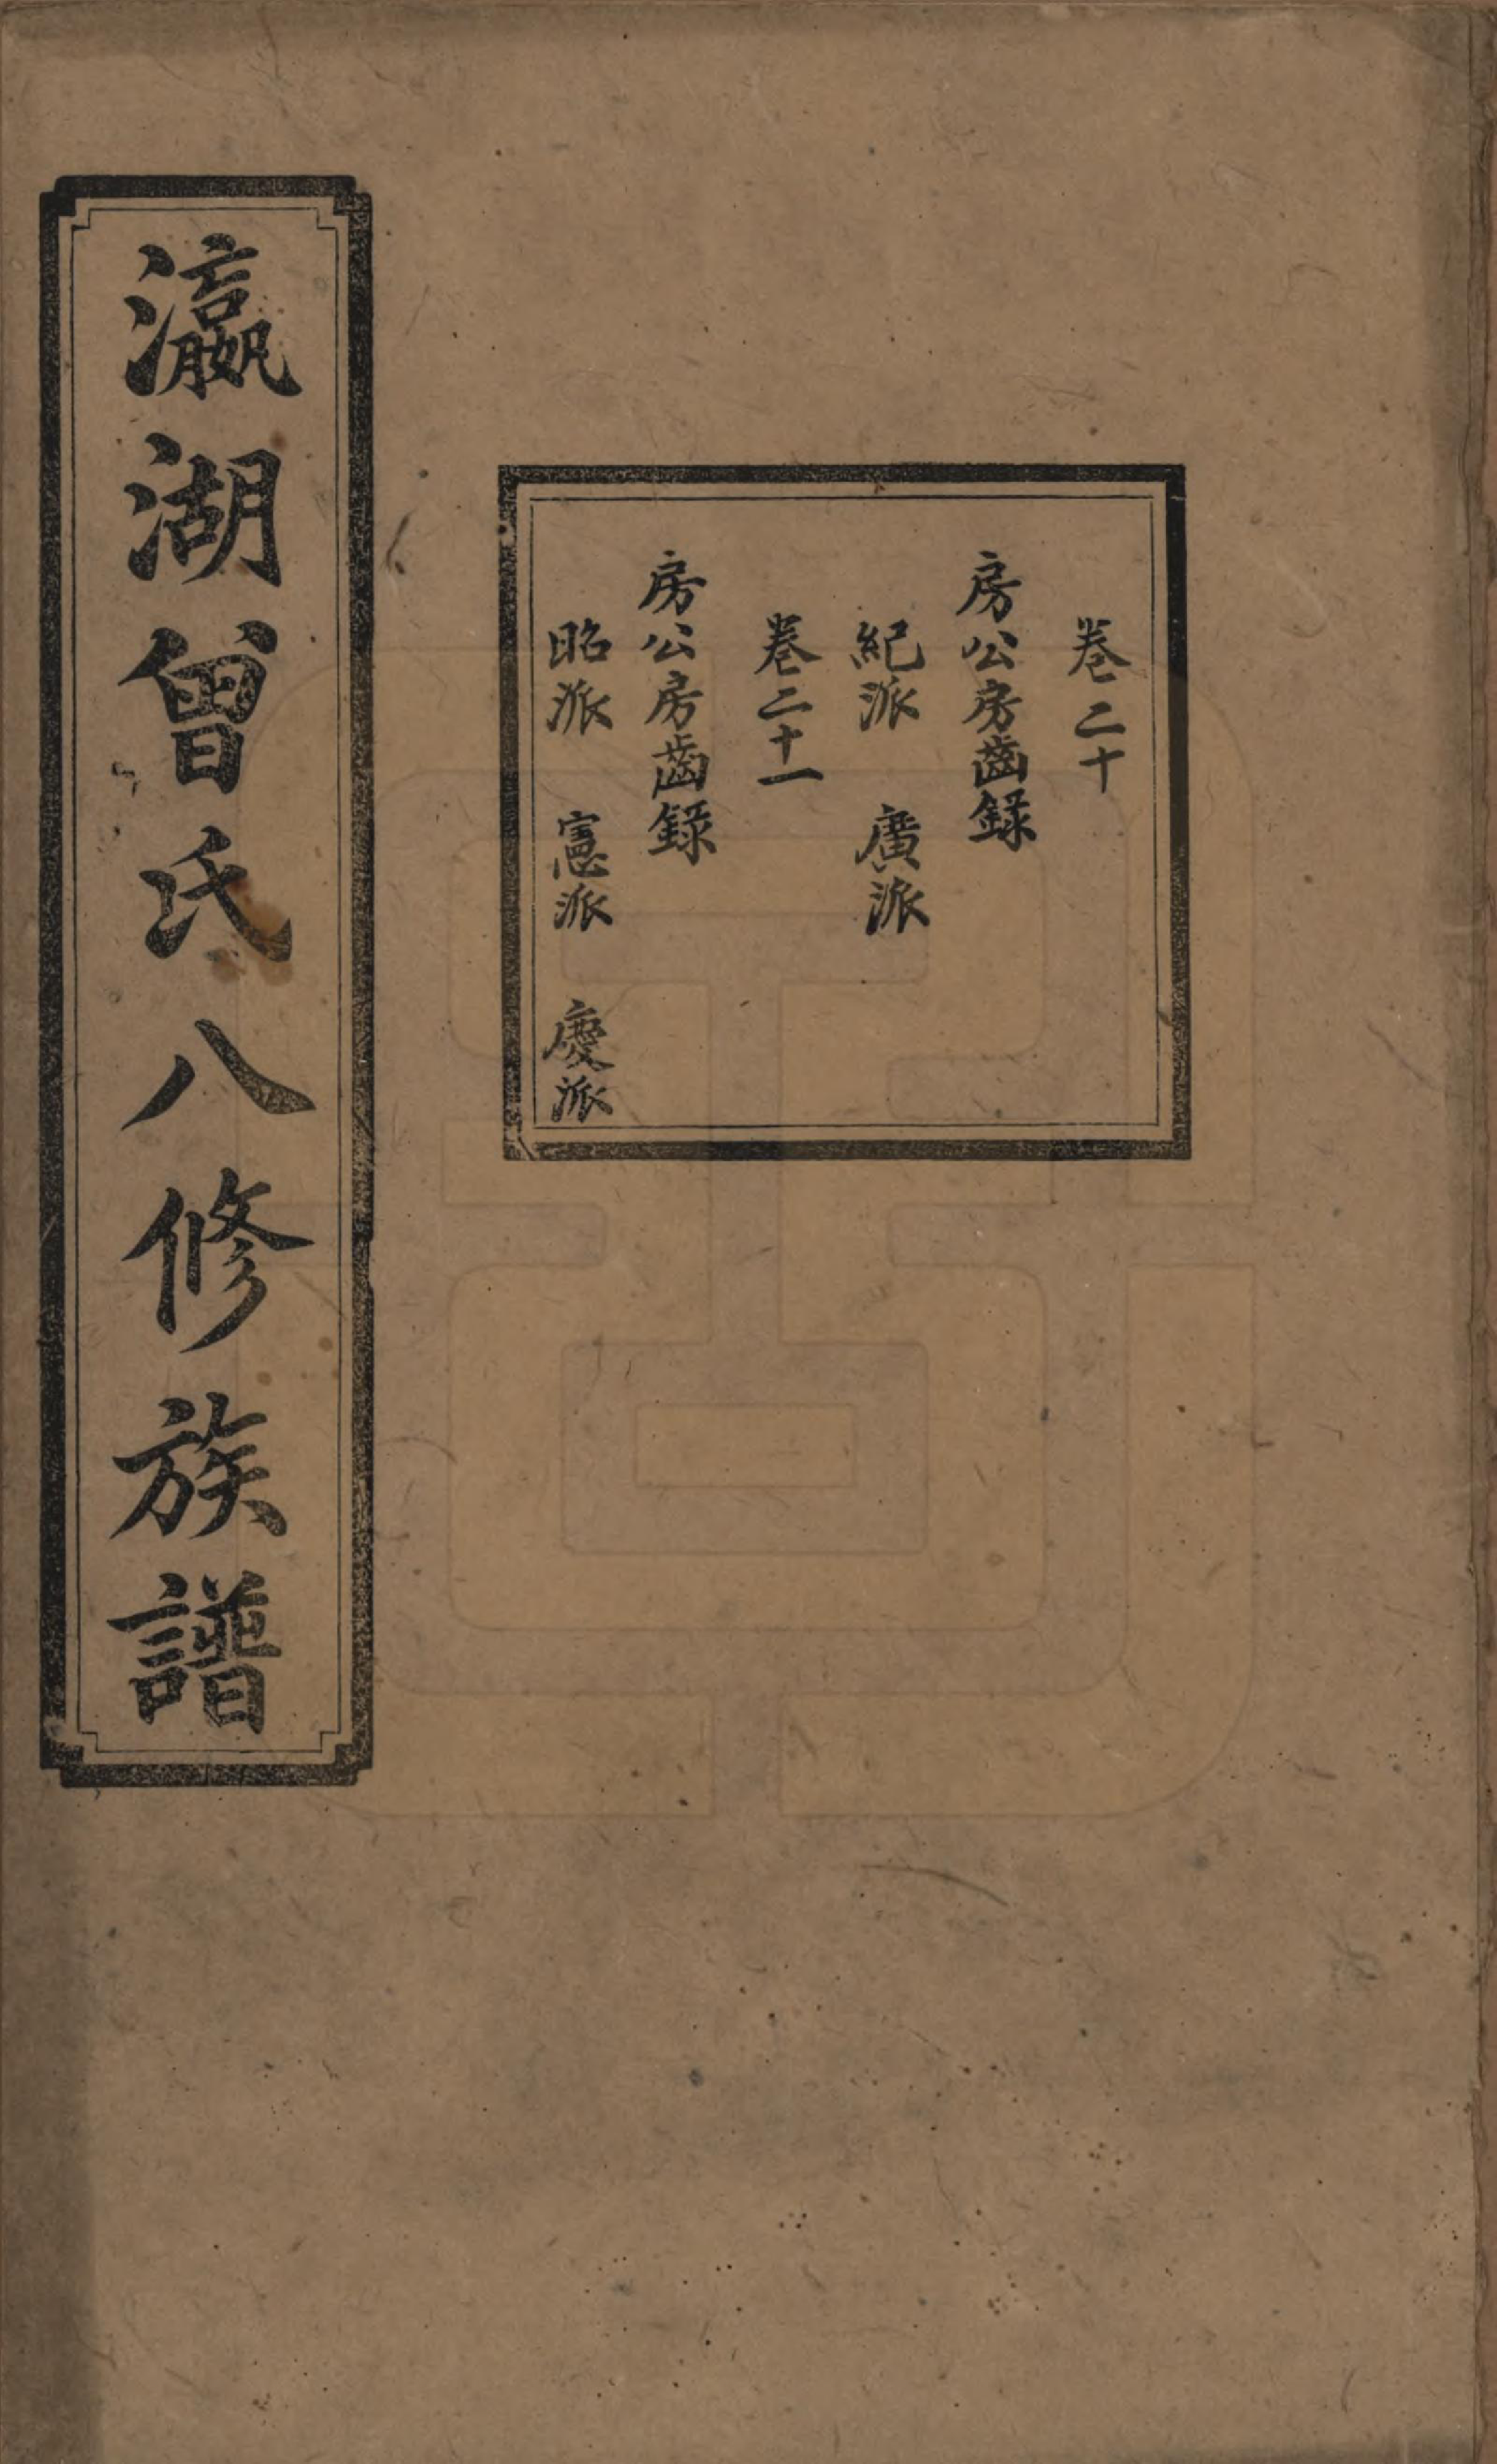 卷二十
房公房齒錄
紀派 廣派
卷二十一
房公房齒錄
昭派 憲派 慶派
瀛湖曾氏八修族譜